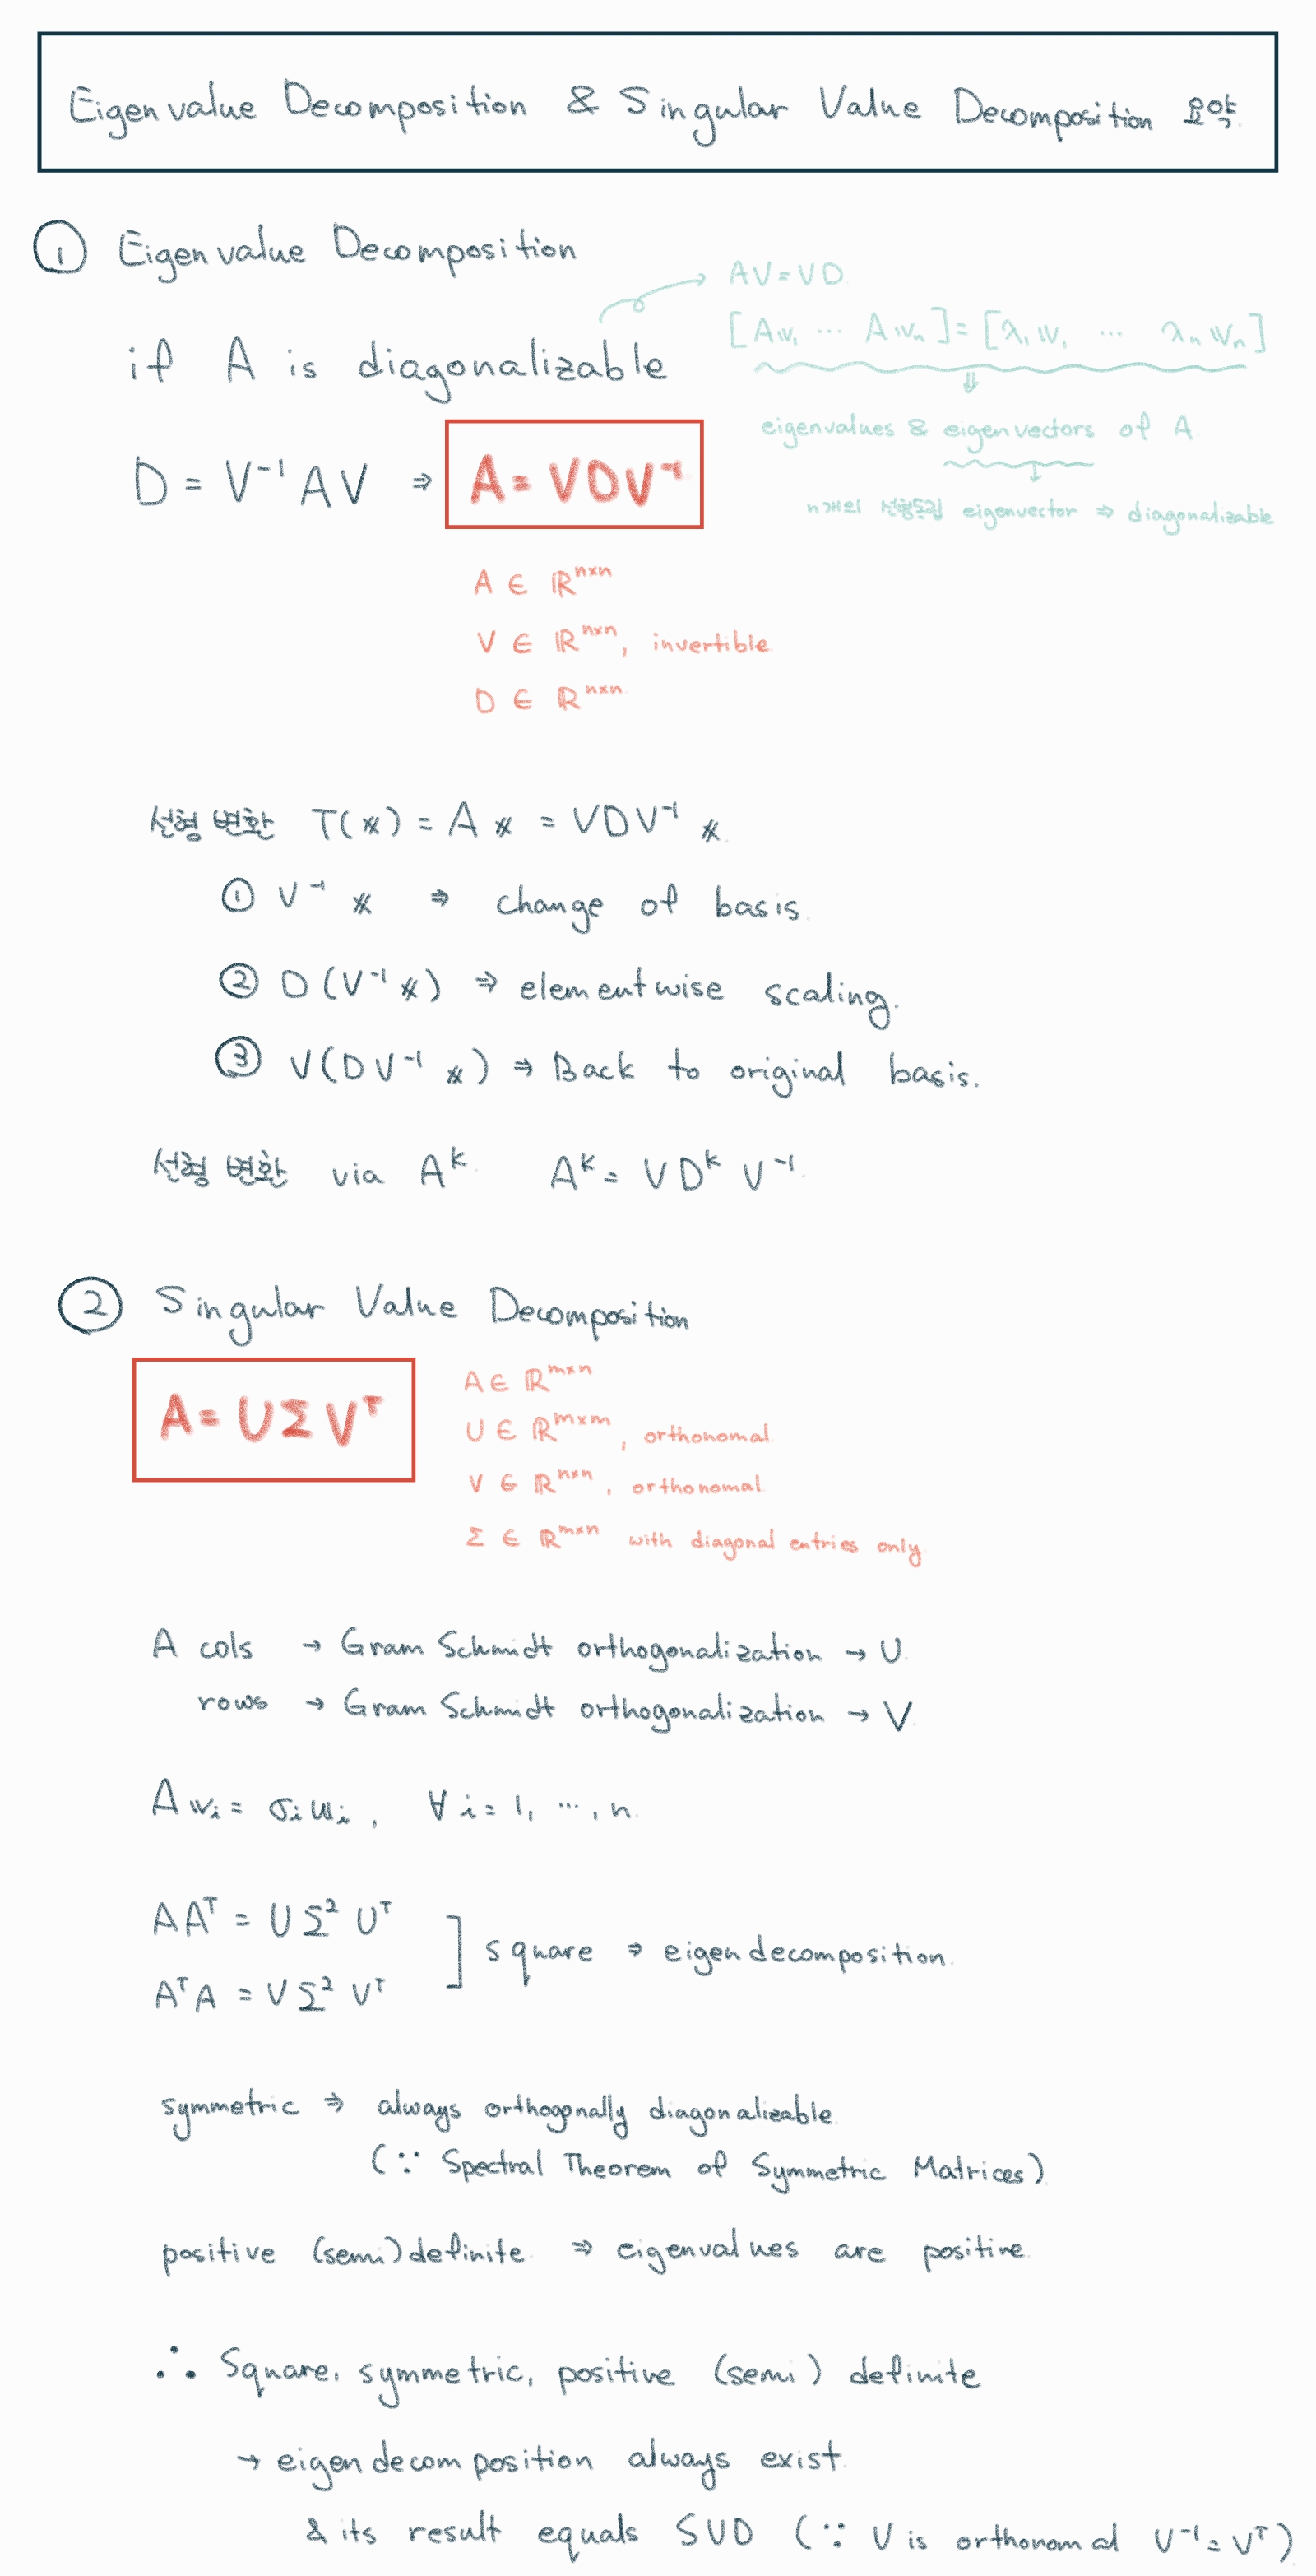 Eigenvalue Decomposition & Singular Value Decomposition 요약.
① Eigenvalue Decomposition
AV = VD
[A𝕧₁ ⋯ A𝕧ₙ] = [λ₁𝕧₁ ⋯ λₙ𝕧ₙ]
if A is diagonalizable
⇓
eigenvalues & eigenvectors of A
D = V⁻¹AV ⇒ A = VDV⁻¹
↓
n개의 선형독립 eigenvector ⇒ diagonalizable
A ∈ ℝⁿˣⁿ
V ∈ ℝⁿˣⁿ, invertible
D ∈ ℝⁿˣⁿ
선형 변환 T(𝕩) = A𝕩 = VDV⁻¹𝕩
① V⁻¹𝕩 ⇒ change of basis.
② D(V⁻¹𝕩) ⇒ elementwise scaling.
③ V(DV⁻¹𝕩) ⇒ Back to original basis.
선형 변환 via Aᵏ Aᵏ = VDᵏV⁻¹
② Singular Value Decomposition
A = UΣVᵀ
A ∈ ℝᵐˣⁿ
U ∈ ℝᵐˣᵐ, orthonomal
V ∈ ℝⁿˣⁿ, orthonomal
Σ ∈ ℝᵐˣⁿ with diagonal entries only
A cols → Gram Schmidt orthogonalization → U
rows → Gram Schmidt orthogonalization → V
A𝕧ᵢ = σᵢ𝕦ᵢ, ∀i = 1, ⋯, n
AAᵀ = UΣ²Uᵀ
] square ⇒ eigendecomposition
AᵀA = VΣ²Vᵀ
symmetric ⇒ always orthogonally diagonalizable
(∵ Spectral Theorem of Symmetric Matrices)
positive (semi)definite ⇒ eigenvalues are positive
∴ Square, symmetric, positive (semi) definite
→ eigendecomposition always exist
& its result equals SVD (∵ V is orthonomal V⁻¹ = Vᵀ)